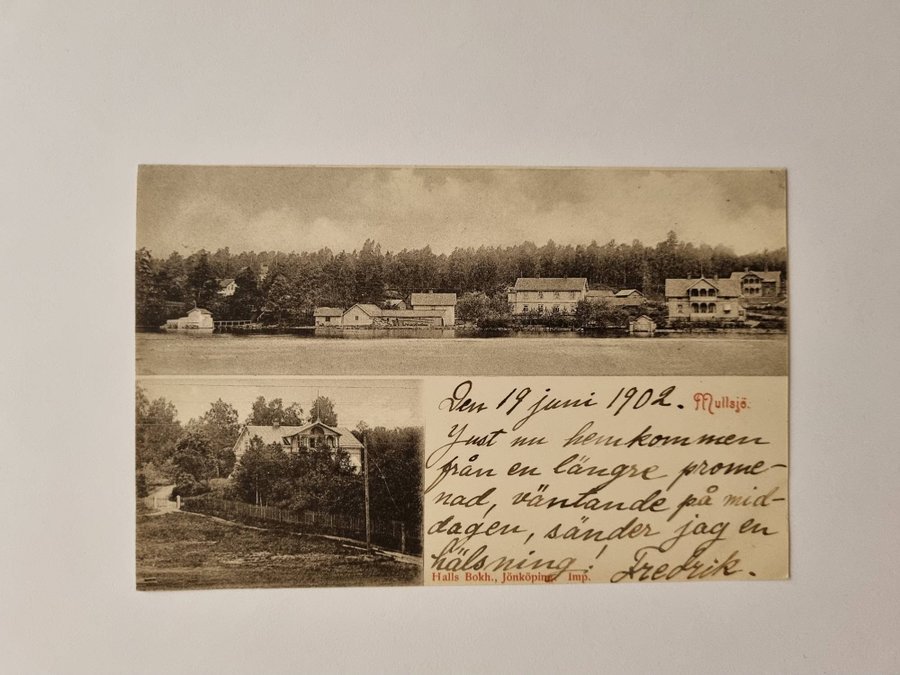 Den 19 juni 1902.
Mullsjö.
Just nu hemkommen
från en längre prome-
nad, väntande på mid-
dagen, sänder jag en
hälsning! Fredrik.
Halls Bokh., Jönköping. Imp.